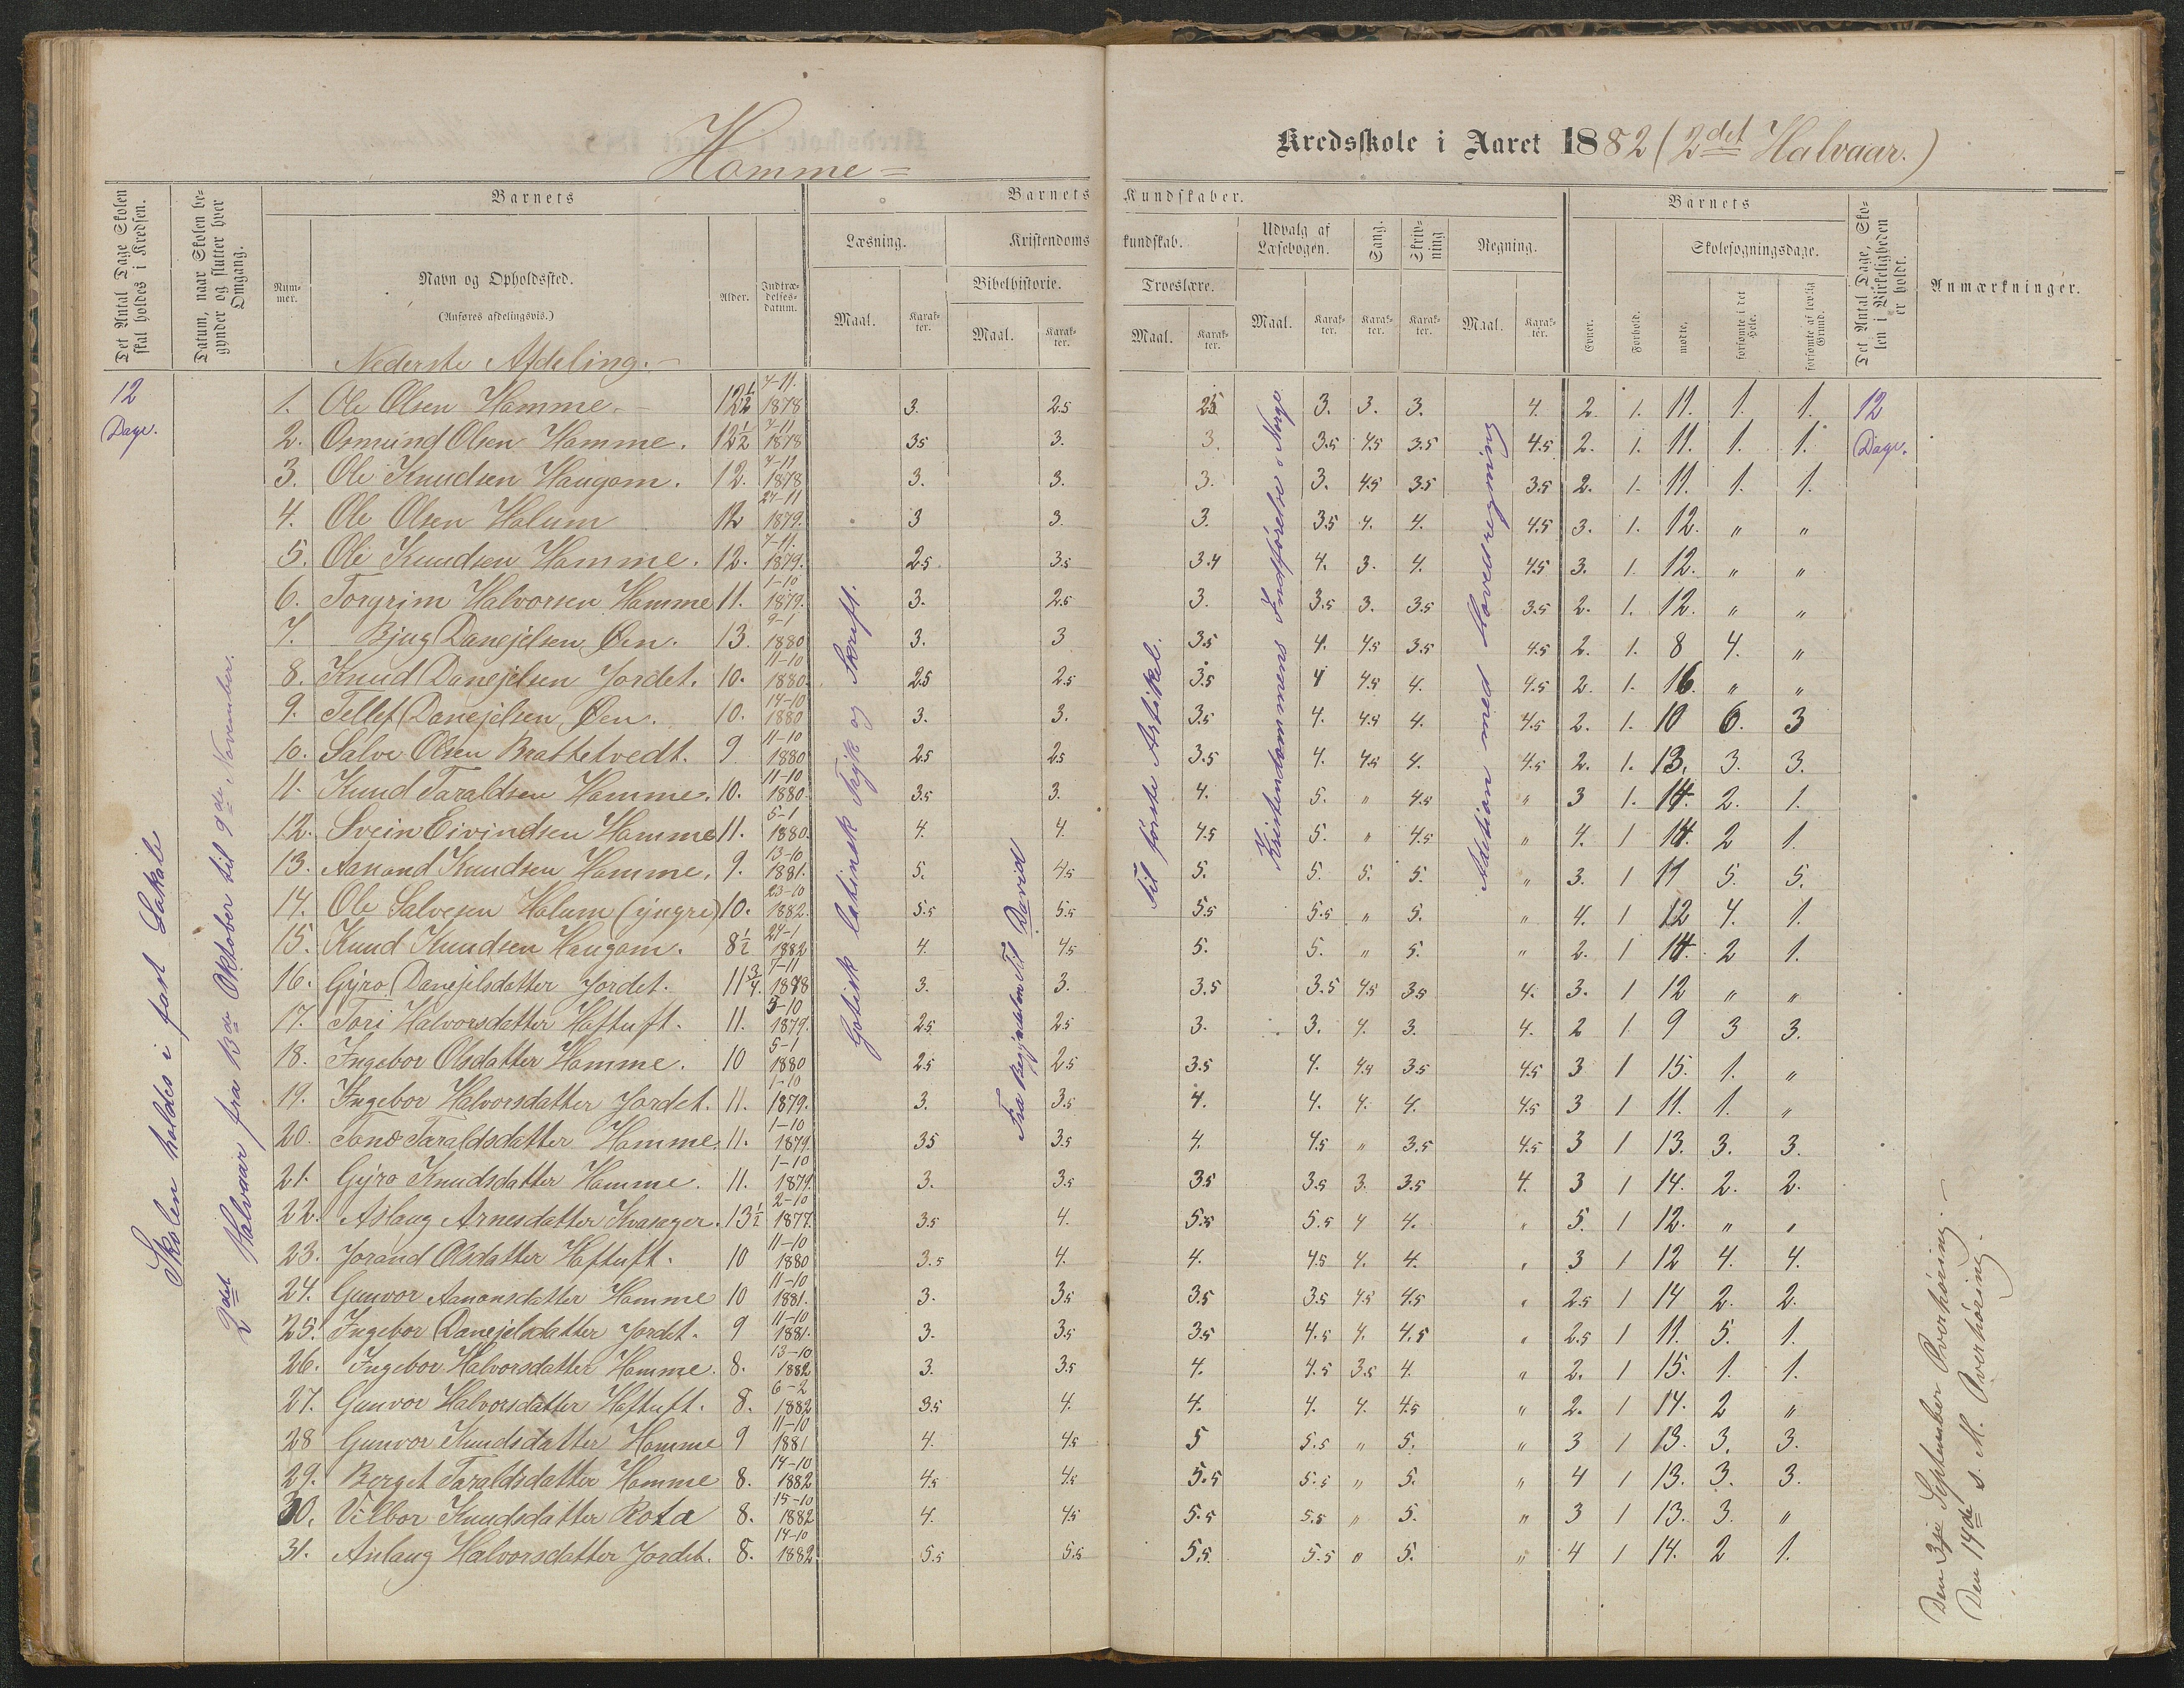 Homme
Kredsskole i Aaret 1882 (2det Halvaar.)
Det Antal Dage Skolen skal holdes i Kredsen.
Datum, naar Skolen begynder og slutter hver Omgang.
Barnets
Nummer.
Navn og Opholdssted.
(Anføres afdelingsvis.)
Alder.
Indtrædelsesdatum.
Barnets Kundskaber.
Læsning.
Maal.
Karakter.
Kristendomskundskab.
Bibelhistorie.
Maal.
Karakter.
Troeslære.
Maal.
Karakter.
Udvalg af Læsebogen.
Maal.
Karakter.
Sang.
Karakter.
Skrivning
Karakter.
Regning.
Maal.
Karakter.
Barnets
Evner.
Forhold.
Skolesøgningsdage.
mødte.
forsømte i det Hele.
forsømte af lovlig Grund.
Det Antal Dage, Skolen i Virkeligheden er holdt.
Anmærkninger.
Nederste Afdeling.
12 Dage.
Skolen holdes i fast Lokale
2det Halvaar fra 13de Oktober til 9de November.
Gotisk latinsk Tryk og Skrift.
Fra Begyndelsen til David
Til første Artikel.
Kristendommens Indførelse i Norge
Addition med Hovedregning
12 Dage.
1. Ole Olsen Homme. 12½ 7-11 1878 3. 2.5 2.5 3. 3. 3. 4. 2. 1. 11. 1. 1.
2. Osmund Olsen Homme. 12½ 7-11 1878 3.5 3. 3. 3.5 4.5 3.5 4.5 2. 1. 11. 1. 1.
3. Ole Knudsen Haugom. 12. 7-11 1878 3. 3. 3. 3. 4.5 3.5 3.5 2. 1. 11. 1. 1.
4. Ole Olsen Holum 12 24-11 1879. 3 3. 3. 3.5 4. 4. 4.5 3. 1. 12. " "
5. Ole Knudsen Homme. 12. 7-11. 1879. 2.5 3.5 3.4 4. 3. 4. 4.5 3. 1. 12. " "
6. Torgrim Halvorsen Homme 11. 1-10 1879. 3. 2.5 3. 3.5 3. 3.5 3.5 2. 1. 12. " "
7. Bjug Danejelsen Øen. 13. 9-1 1880 3. 3 3.5 4. 4.5 3.5 4.5 2. 1. 8 4. "
8. Knud Danejelsen Jordet. 10. 11-10 1880. 2.5 2.5 3.5 4 4.5 4. 4.5 2. 1. 16. " "
9. Tellef Danejelsen Øen. 10. 14-10 1880 3. 3. 3.5 4. 4.4 4. 4.5 2. 1. 10 6. 3
10. Salve Olsen Brattetvedt. 9 11-10 1880 2.5 2.5 3.5 4. 4.5 4. 4.5 2. 1. 13. 3. 3.
11. Knud Taraldsen Homme. 10. 11-10 1880. 3.5 3. 4. 5. " 4.5 " 3 1. 14. 2. 1.
12. Svein Eivindsen Homme 11. 5-1 1880. 4. 4. 4.5 5. " 4.5 " 4. 1 14. 2 1.
13. Aanond Knudsen Homme. 9. 13-10 1881. 5. 4.5 5. 5. 5. 5. " 3. 1 11 5. 5.
14. Ole Salvesen Holum (yngre) 10. 23-10 1882. 5.5 5.5 5.5 5.5 " 5. " 4. 1 12 4. 1.
15. Knud Knudsen Haugom. 8½ 24-1 1882 4. 4.5 5. 5. " 5. " 2. 1 14. 2 1.
16. Gyro Danejelsdatter Jordet. 11¾. 7-11 1878 3. 3. 3.5 3.5 4.5 3.5 4. 3. 1 12 " "
17. Tori Halvorsdatter Haftuft. 11. 5-10 1879. 2.5 2.5 3. 3. 4. 3. 4. 2 1. 9 3 3.
18. Ingebor Olsdatter Homme. 10 5-1 1880 2.5 2.5 3.5 4. 4.4 3.5 4.5 3 1 15. 1. "
19. Ingebor Halvorsdatter Jordet. 11. 1-10 1879. 3. 3.5 4. 4. 4. 4. 4.5 3 1 11. 1. "
20. Tone Taraldsdatter Homme. 11. 1-10 1879. 3.5 3.5 4. 4.5 " 3.5 4.5 3 1 13. 3. 3.
21. Gyro Knudsdatter Homme. 11. 1-10 1879. 3. 3.5 3.5 3.5 3. 3.5 4. 3 1 14. 2. 2.
22. Aslaug Arnesdatter Kvasager. 13½ 2-10 1877. 3.5 4. 5.5 5.5 4 4. " 5. 1 12. " "
23. Jorand Olsdatter Haftuft. 10 11-10 1880 3.5 4. 4. 4.5 4. 4. " 3 1 12 4. 4.
24. Gunvor Aanonsdatter Homme 10 11-10 1881. 3. 3.5 3.5 3.5 4.5 4.5 " 2.5 1 14 2. 2.
25. Ingebor Danejelsdatter Jordet. 9 11-10 1881. 3. 3.5 3.5 4.5 4. 4.5 " 2.5 1 11. 5. 1.
26. Ingebor Halvorsdatter Homme. 8. 13-10 1882 3. 3.5 4. 4.5 3.5 4. " 2. 1 15. 1. 1.
27. Gunvor Halvorsdatter Haftuft. 8. 6-2 1882 3.5 4. 4. 4. 4. 4.5 " 2. 1 14. 2 "
28 Gunvor Knudsdatter Homme 9 11-10 1881 4. 4.5 5 5.5 " 5. " 3 1 13. 3. 3.
29. Berget Taraldsdatter Homme 8. 14-10 1882 4.5 4.5 5.5 5.5 " 5. " 4 1 13. 3. 3.
30. Vilbor Knudsdatter Rota 8. 15-10 1882 4. 4.5 5.5 5.5 " 5. " 3 1 13. 3. "
31. Aslaug Halvorsdatter Jordet. 8. 14-10 1882. 5.5 5.5 5.5. 5.5 " 5. " 4 1 14. 2 1.
Den 3je September Overhøring.
Den 14de s. M. Overhøring.